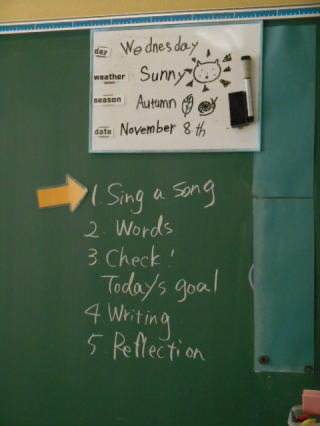 day Wednesday
weather Sunny
season Autumn
date November 8th
1. Sing a song
2. Words
3 Check!
Today's goal
4 Writing
5. Reflection